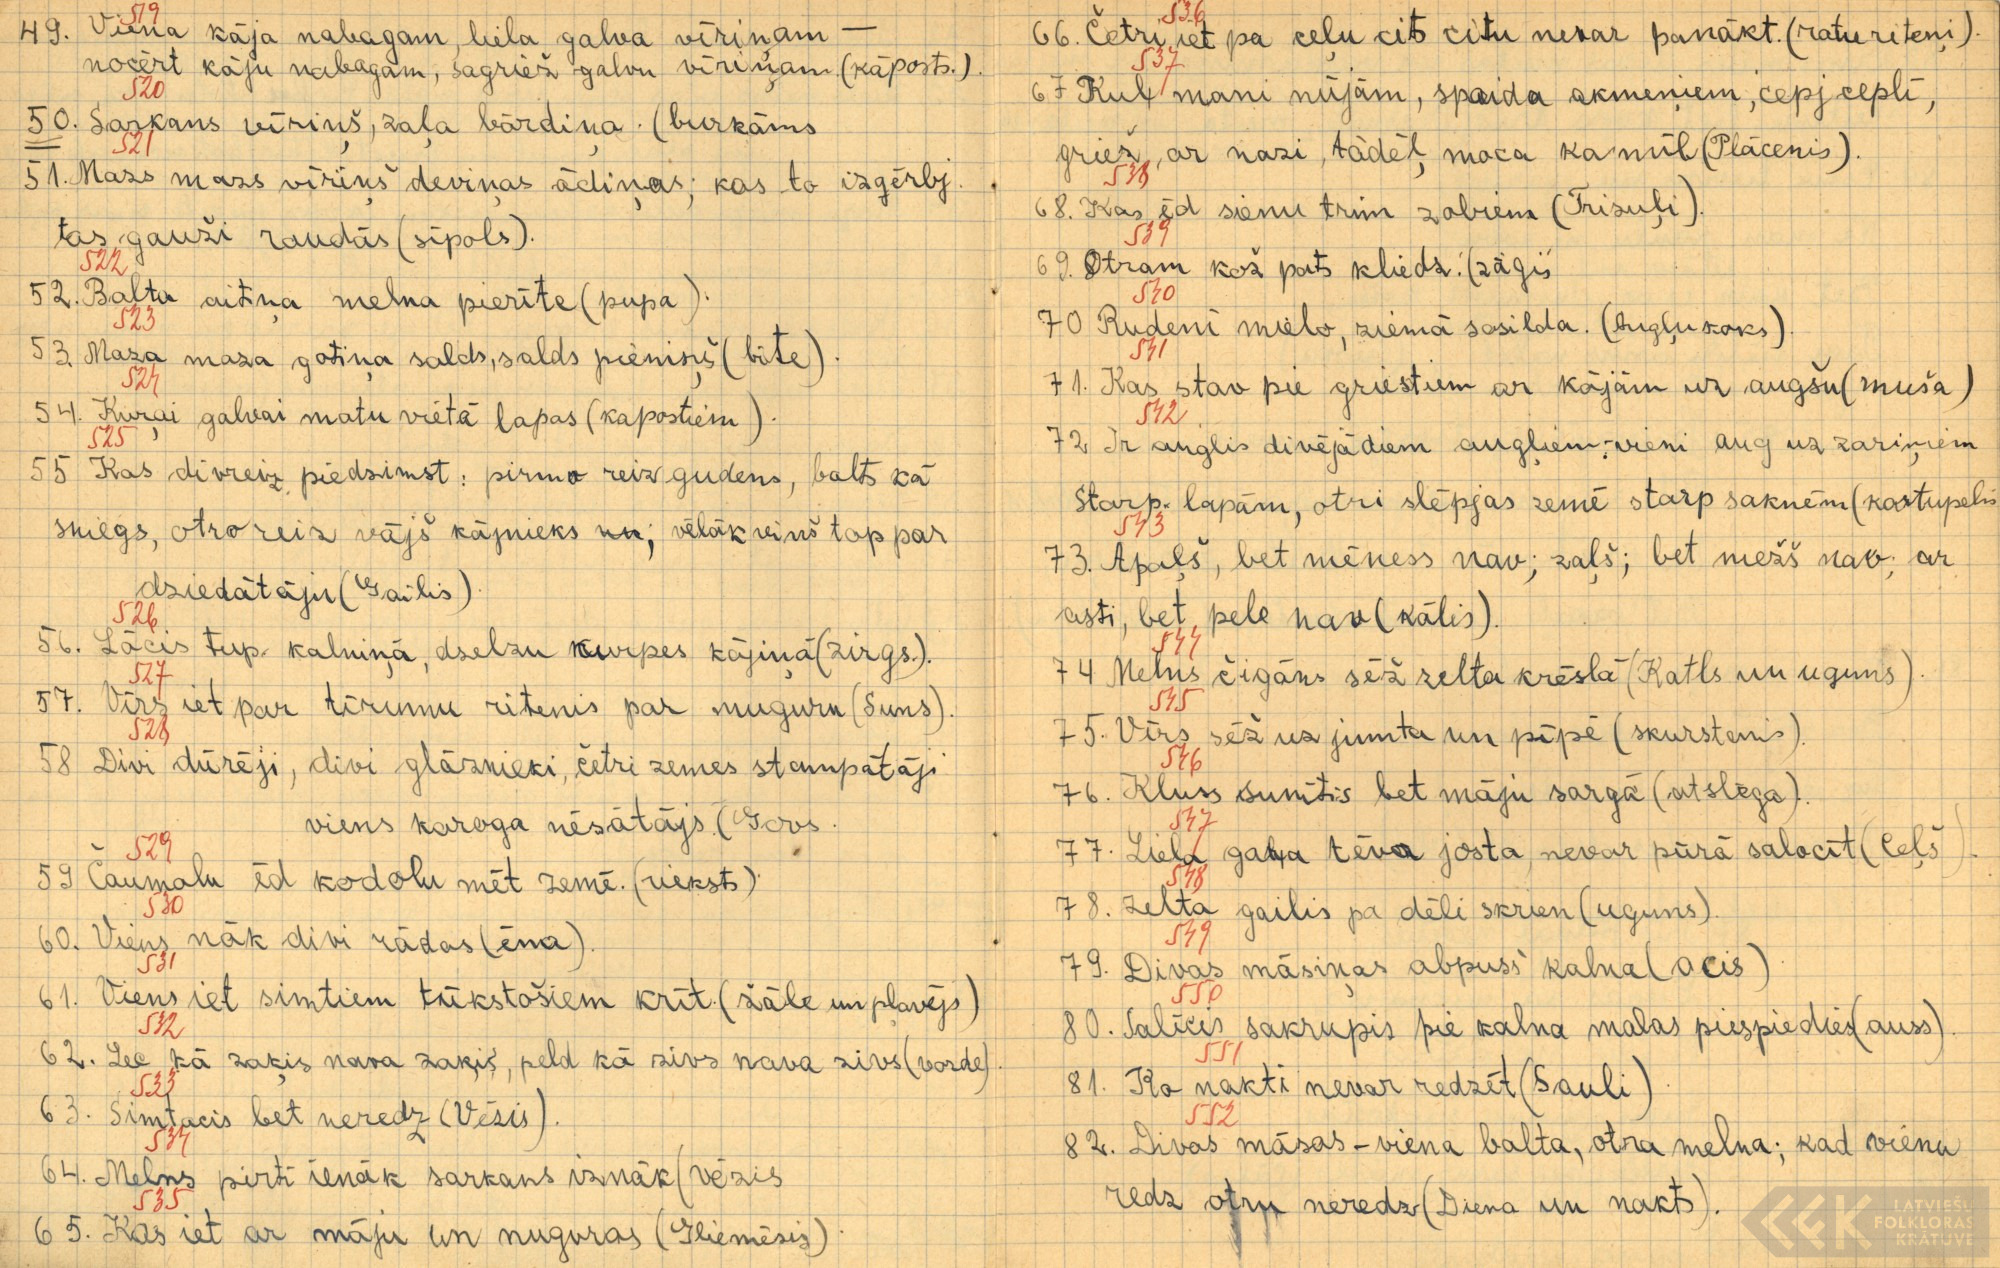 519
49. Viena kāja nabagam, liela galva vīriņam —
nocērt kāju nabagam, sagriež galvu vīriņam (kāposts.)
520
50. Sarkans vīriņš, zaļa bārdiņa. (burkāns
521
51. Mazs mazs vīriņš deviņas ādiņas; kas to izģērbj
tas gauži raudās (sīpols).
522
52. Balta aitiņa melna pierīte (pupa).
523
53. Maza maza gotiņa salds, salds pieniņš (bite).
524
54. Kuŗai galvai matu vietā lapas (kāpostiem).
525
55 Kas divreiz piedzimst: pirmo reiz gudens, balts kā
sniegs, otro reiz vājš kājnieks; vēlāk viņš top par
dziedātāju (Gailis).
526
56. Lācis tup kalniņā, dzelzu kurpes kājiņā (zirgs.).
527
57. Vīrs iet par tīrumu ritenis par muguru (Suns).
528
58 Divi dūrēji, divi glāznieki, četri zemes stampātāji
viens karoga nēsātājs. (Govs.
529
59 Čaumalu ēd kodolu mēt zemē. (rieksts).
530
60. Viens nāk divi rādas (ēna).
531
61. Viens iet simtiem tūkstošiem krīt. (zāle un pļavējs)
532
62. Lec kā zaķis nava zaķis, peld kā zivs nava zivs (varde).
533
63. Simtacis bet neredz (Vēzis).
534
64. Melns pirtī ienāk sarkans iznāk (vēzis
535
65. Kas iet ar māju un muguras (Gliemēzis).
536
66. Četri iet pa ceļu cits citu nevar panākt. (ratu riteņi).
537
67 Kuļ mani nūjām, spaida akmeņiem, cepj ceplī,
griež, ar nazi, tādēļ moca ka mīl (Plācenis).
538
68. Kas ēd sienu trim zobiem (Trīsuļi).
539
69. Otram kož pats kliedz. (zāģis
540
70 Rudenī mielo, ziemā sasilda. (Augļu koks).
541
71. Kas stāv pie griestiem ar kājām uz augšu (muša)
542
72 Ir auglis divējādiem augļiem; vieni aug uz zariņiem
starp lapām, otri slēpjas zemē starp saknēm (kartupelis
543
73. Apaļš, bet mēness nav; zaļš; bet mežs nav; ar
asti, bet pele nav (kālis).
544
74 Melns čigāns sēž zelta krēslā (Katls un uguns).
545
75. Vīrs sēž uz jumta un pīpē (skurstenis).
546
76. Kluss sunītis bet māju sargā (atslēga).
547
77. Liela gaŗa tēva josta nevar pūrā salocīt (Ceļš).
548
78. Zelta gailis pa dēli skrien (uguns).
549
79. Divas māsiņas abpuss kalna (acis)
550
80. Salīcis sakrupis pie kalna malas piespiedies (auss).
551
81. Ko naktī nevar redzēt (Sauli)
552
82. Divas māsas – viena balta, otra melna; kad vienu
redz otru neredz (Diena un nakts).
LATVIEŠU
FOLKLORAS
KRĀTUVE